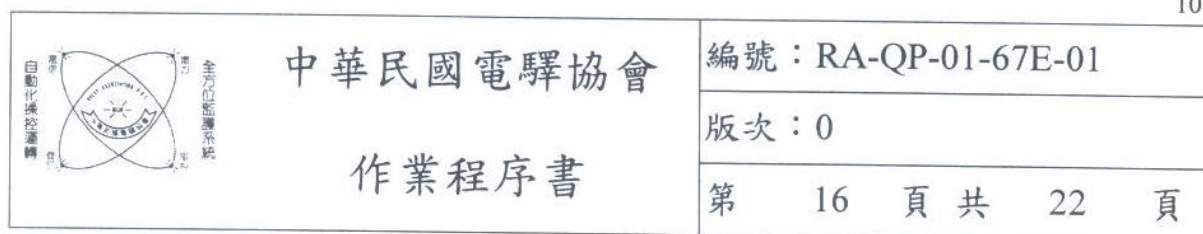 10
自動化操控運轉
全方位監護系統
中華民國電驛協會
作業程序書
編號：RA-QP-01-67E-01
版次：0
第 16 頁 共 22 頁